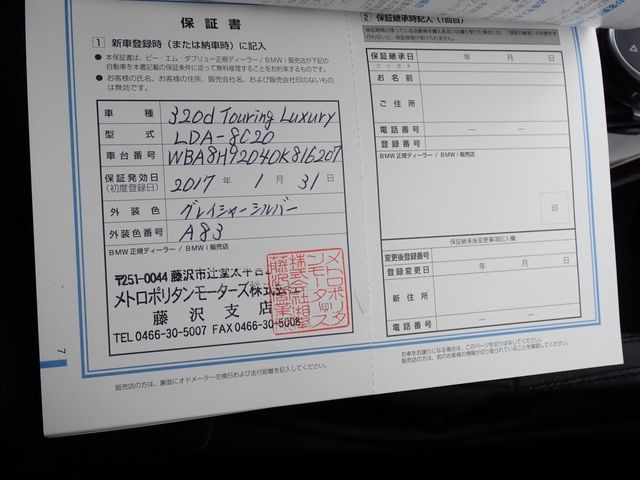 保証書
1 新車登録時(または納車時)に記入
● 本保証書は、ビー・エム・ダブリュー正規ディーラー/BMWi販売店が下記の
自動車を本書記載の保証条件に従って無料修理することをお約束するものです。
● お客様の氏名、お客様の住所、販売会社名、および販売会社社印のないもの
は無効です。
車種 320d Touring Luxury
型式 LDA-8C20
車台番号 WBA8H92040K816207
保証発効日 2017 年 1 月 31 日
(初度登録日)
外装色 グレイシャーシルバー
外装色番号 A83
BMW正規ディーラー/BMWi販売店
〒251-0044 藤沢市辻堂太平台
メトロポリタンモーターズ株式会社
藤沢支店
TEL 0466-30-5007 FAX 0466-30-5008
販売店の方は、裏面にオドメーター交換日および走行距離を記入してください。
7
2 保証継承時記入(1回目)
保証継承日 年 月 日
フリガナ
お名前
ご住所
電話番号
登録番号
BMW正規ディーラー/BMWi販売店
印
保証継承後変更事項記入欄
変更後登録番号
登録変更日 年 月 日
新住所
電話番号
お車をお譲りになる場合は、このページを切りはなしてください。
販売店の方は、前のお客様の情報が切り取られていることを確認してください。